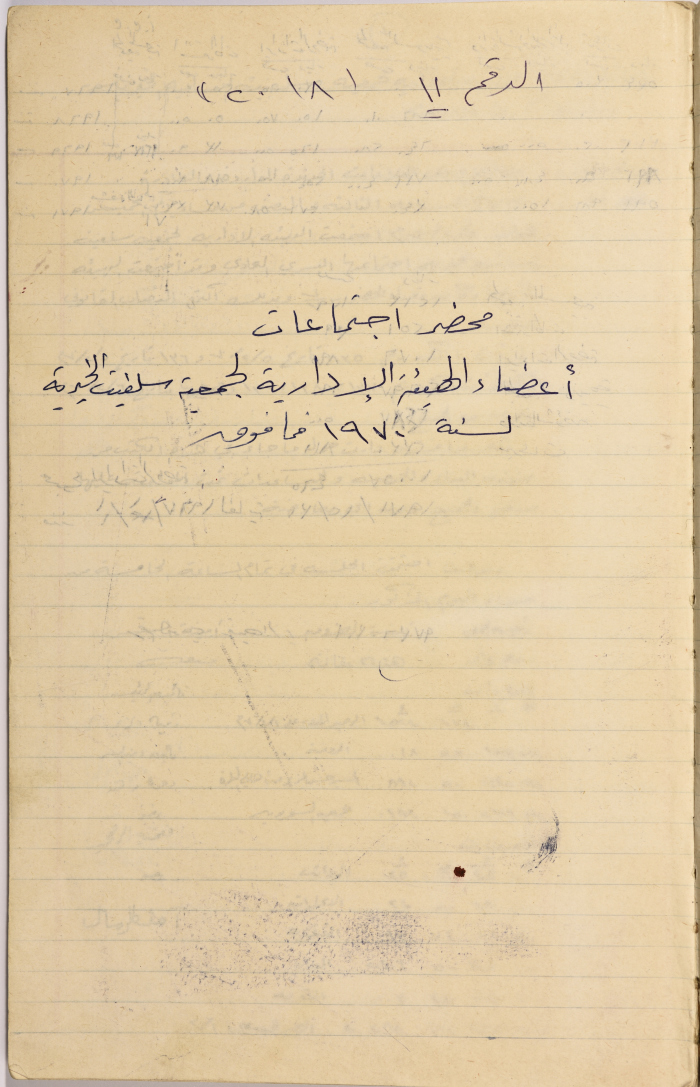 الرقم ١١ (٢٠١٨)
محضر اجتماعات
أعضاء الهيئة الإدارية لجمعية سلفيت الخيرية
لسنة ١٩٧٠ فما فوق